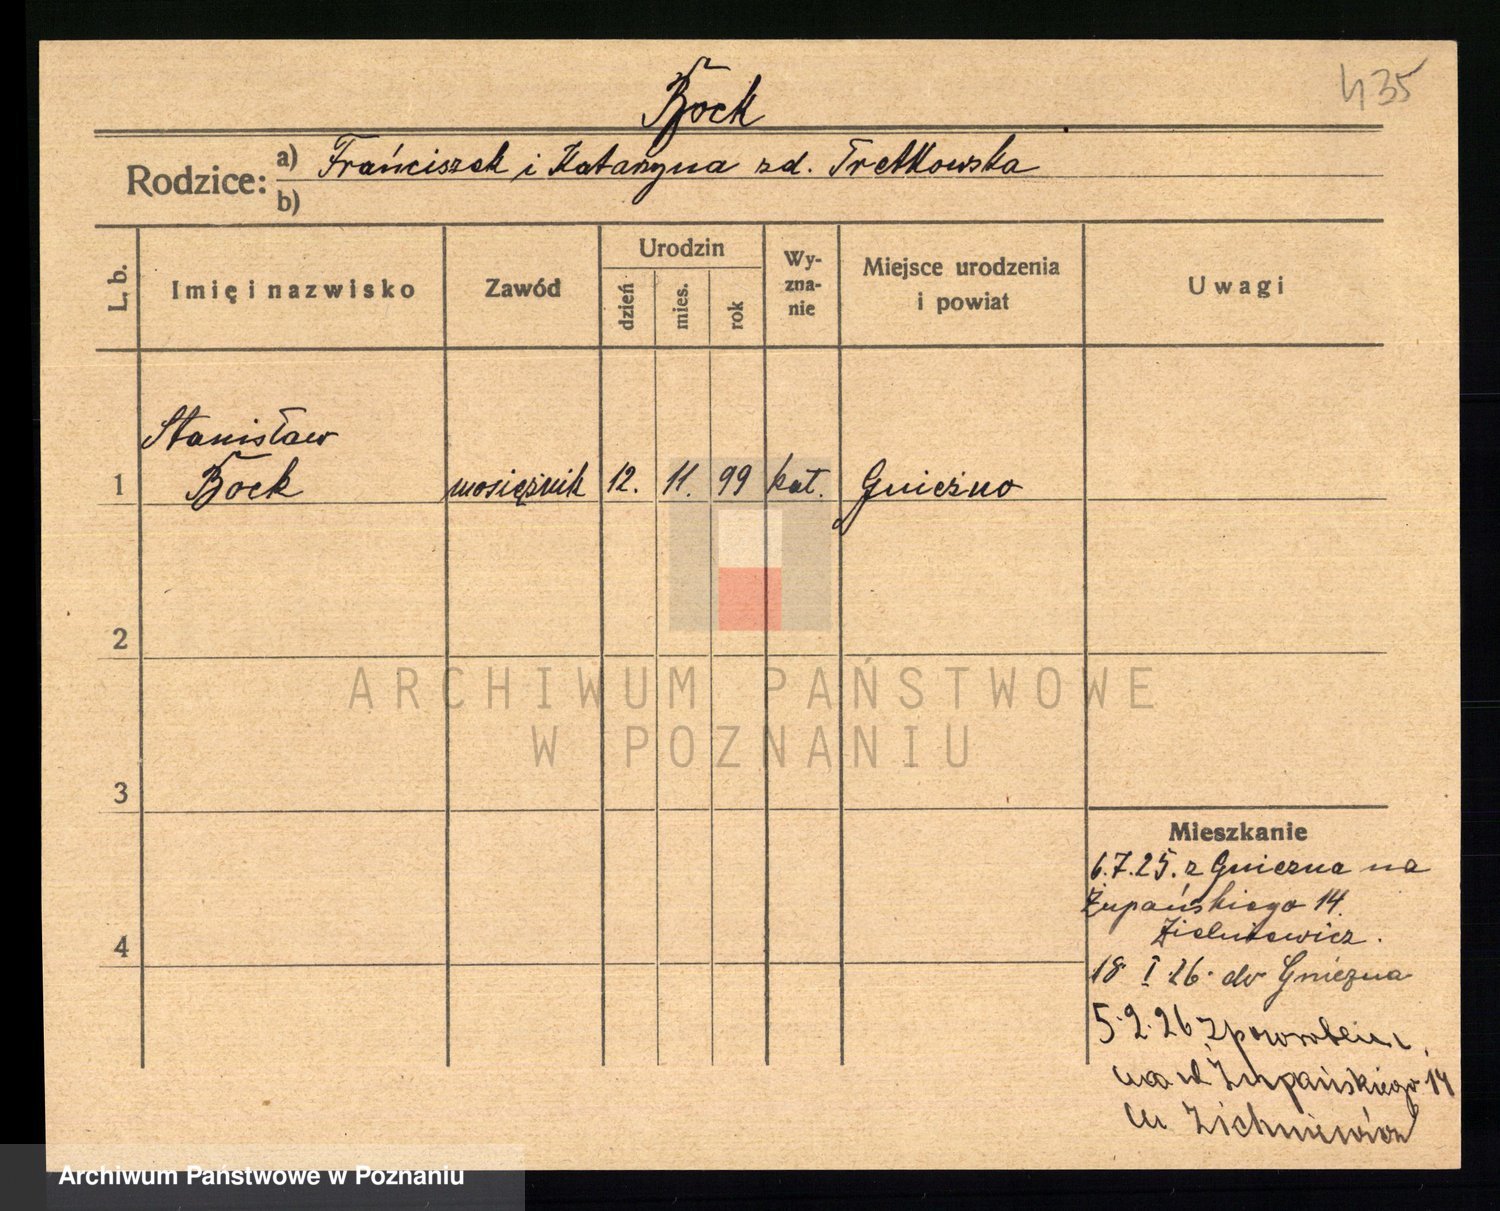 435
Bock
Rodzice: a) Franciszek i Katarzyna zd. Tretkowska
b)
L. b.
Imię i nazwisko
Zawód
Urodzin
dzień
mies.
rok
Wy-
zna-
nie
Miejsce urodzenia
i powiat
Uwagi
Stanisław
1 Bock mosiężnik 12. 11. 99 kat. Gniezno
2
3
4
Mieszkanie
6.7.25. z Gniezna na
Żupańskiego 14.
18 I 26. do Gniezna
5.2.26 z powrotem
na ul Żupańskiego 14
ARCHIWUM PAŃSTWOWE
W POZNANIU
Archiwum Państwowe w Poznaniu